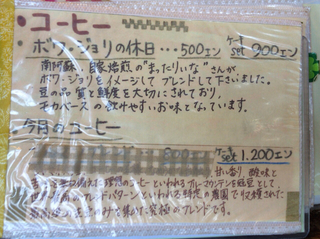 コーヒー
ボワ・ジョリの休日・・・500エン ケーキset 900エン
南阿蘇、自家焙煎の"まったりぃな"さんが
ボワ・ジョリをイメージしてブレンドして下さいました。
豆の品質と鮮度を大切にされており、
モカベースの飲みやすいお味となっています。
今月のコーヒー
ケーキset 1.200エン
甘い香り、酸味と
コーヒーといわれるブルーマウンテンを
ブレンドパターンといわれる特定の農園で収穫された
を集めた究極のブレンドです。